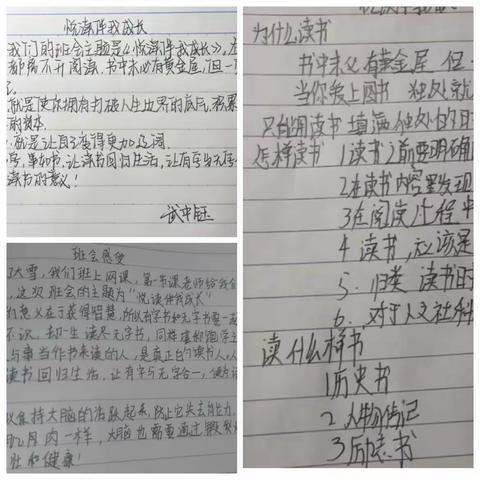 悦读伴我成长
我们的班会主题是《悦读伴我成长》,在
都离不开阅读,书中未必有黄金屋,但一
就是使你拥有打破人生边界的底气,积累
的资本.
就是让自己变得更加
号,事如书,让读书回归生活,让有字与无字
读书的意义!
武中钰
班会感受
大雪,我们班上网课,第一节课老师给我们
,这次班会的主题为“悦读伴我成长”
意义在于获得智慧,所以有字书和无字书要一起
不识,却一生读尽无字书,同样堪称饱学之
与事当作书来读的人,是真正的读书人,
读书回归生活,让有字与无字合一,
以保持大脑的活跃起来,防止它失去能力,
肌肉一样,大脑也需要通过锻炼
壮和健康!
为什么读书
书中未必有黄金屋 但
当你爱上图书 独处就
只能用读书填满独处的日
怎样读书 1读书之前要明确
2在读书内容里发现
3在阅读过程中
4 读书,应该是
5.归类 读书时
6.对于人文社科
读什么样书
1历史书
2人物传记
3励志书